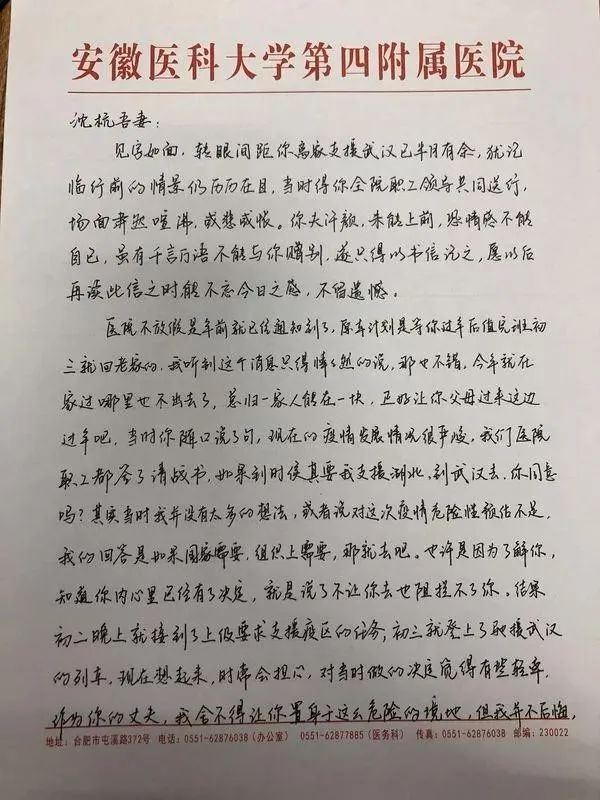 安徽医科大学第四附属医院
沈杭吾妻：
见字如面，转眼间距你离家支援武汉已半月有余，犹记
临行前的情景仍历历在目，当时得你全院职工领导共同送行，
场面肃然喧沸，或悲或怅。你夫汗颜，未能上前，恐情感不能
自已，虽有千言万语不能与你赠别，遂只得以书信记之，愿以后
再读此信之时能不忘今日之感，不留遗憾。
医院不放假是年前就已经通知到了，原本计划是等你过年后值完班初
三就回老家的，我听到这个消息只得悻悻然的说，那也不错，今年就在
家过哪里也不出去了，总归一家人能在一块，正好让你父母过来这边
过年吧，当时你随口说了句，现在的疫情发展情况很严峻，我们医院
职工都签了请战书，如果到时候真要我支援湖北，到武汉去，你同意
吗？其实当时我并没有太多的想法，或者说对这次疫情危险性预估不足，
我的回答是如果国家需要，组织上需要，那就去吧。也许是因为了解你，
知道你内心里已经有了决定，就是说了不让你去也阻拦不了你。结果
初二晚上就接到了上级要求支援疫区的任务，初三就登上了驰援武汉
的列车，现在想起来，时常会担心，对当时做的决定觉得有些轻率，
作为你的丈夫，我舍不得让你置身于这么危险的境地，但我并不后悔，
地址：合肥市屯溪路372号 电话：0551-62876038（办公室） 0551-62877885（医务科） 传真：0551-62876038 邮编：230022